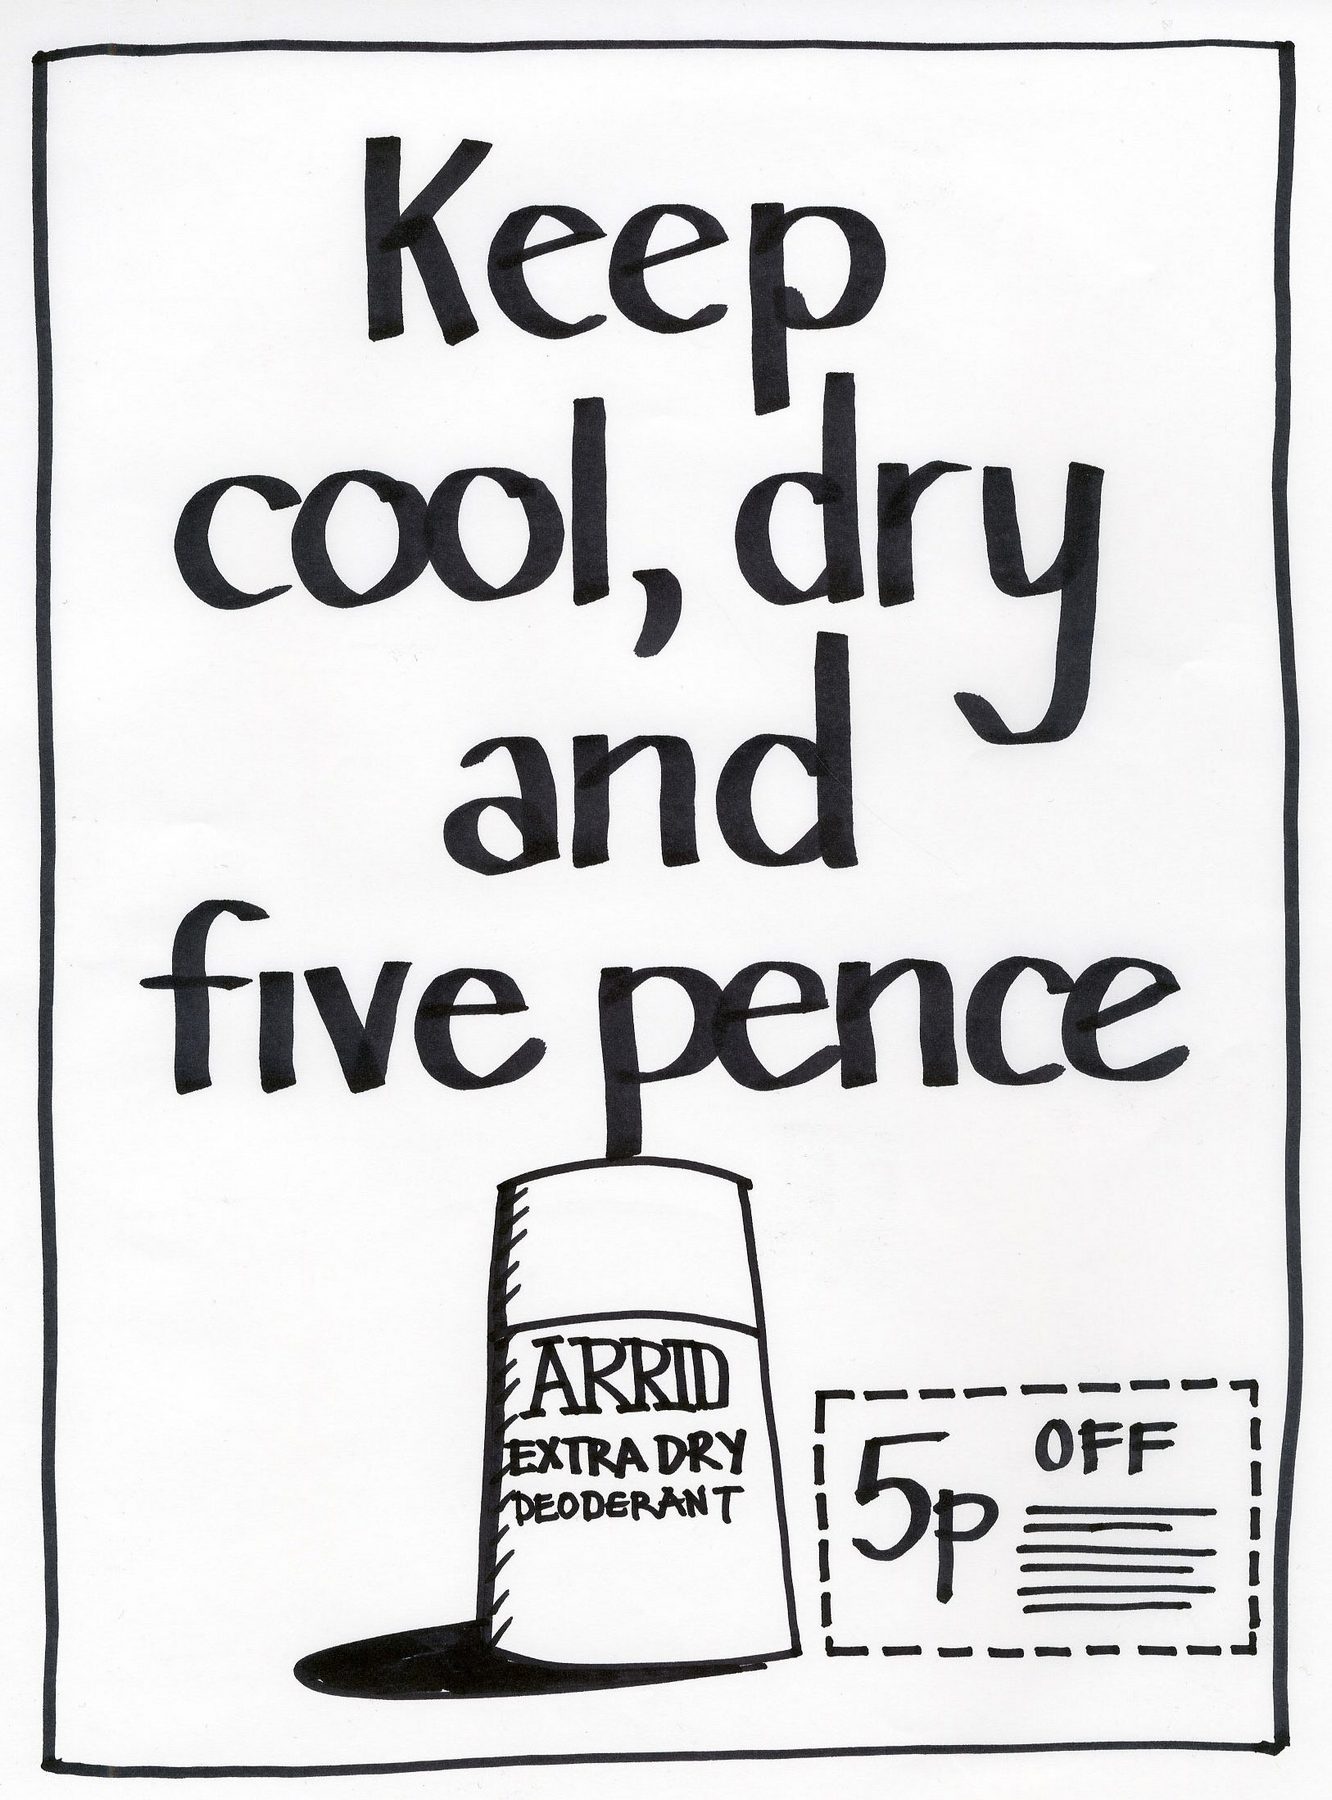 Keep
cool, dry
and
five pence
ARRID
EXTRA DRY
DEODERANT
5p OFF